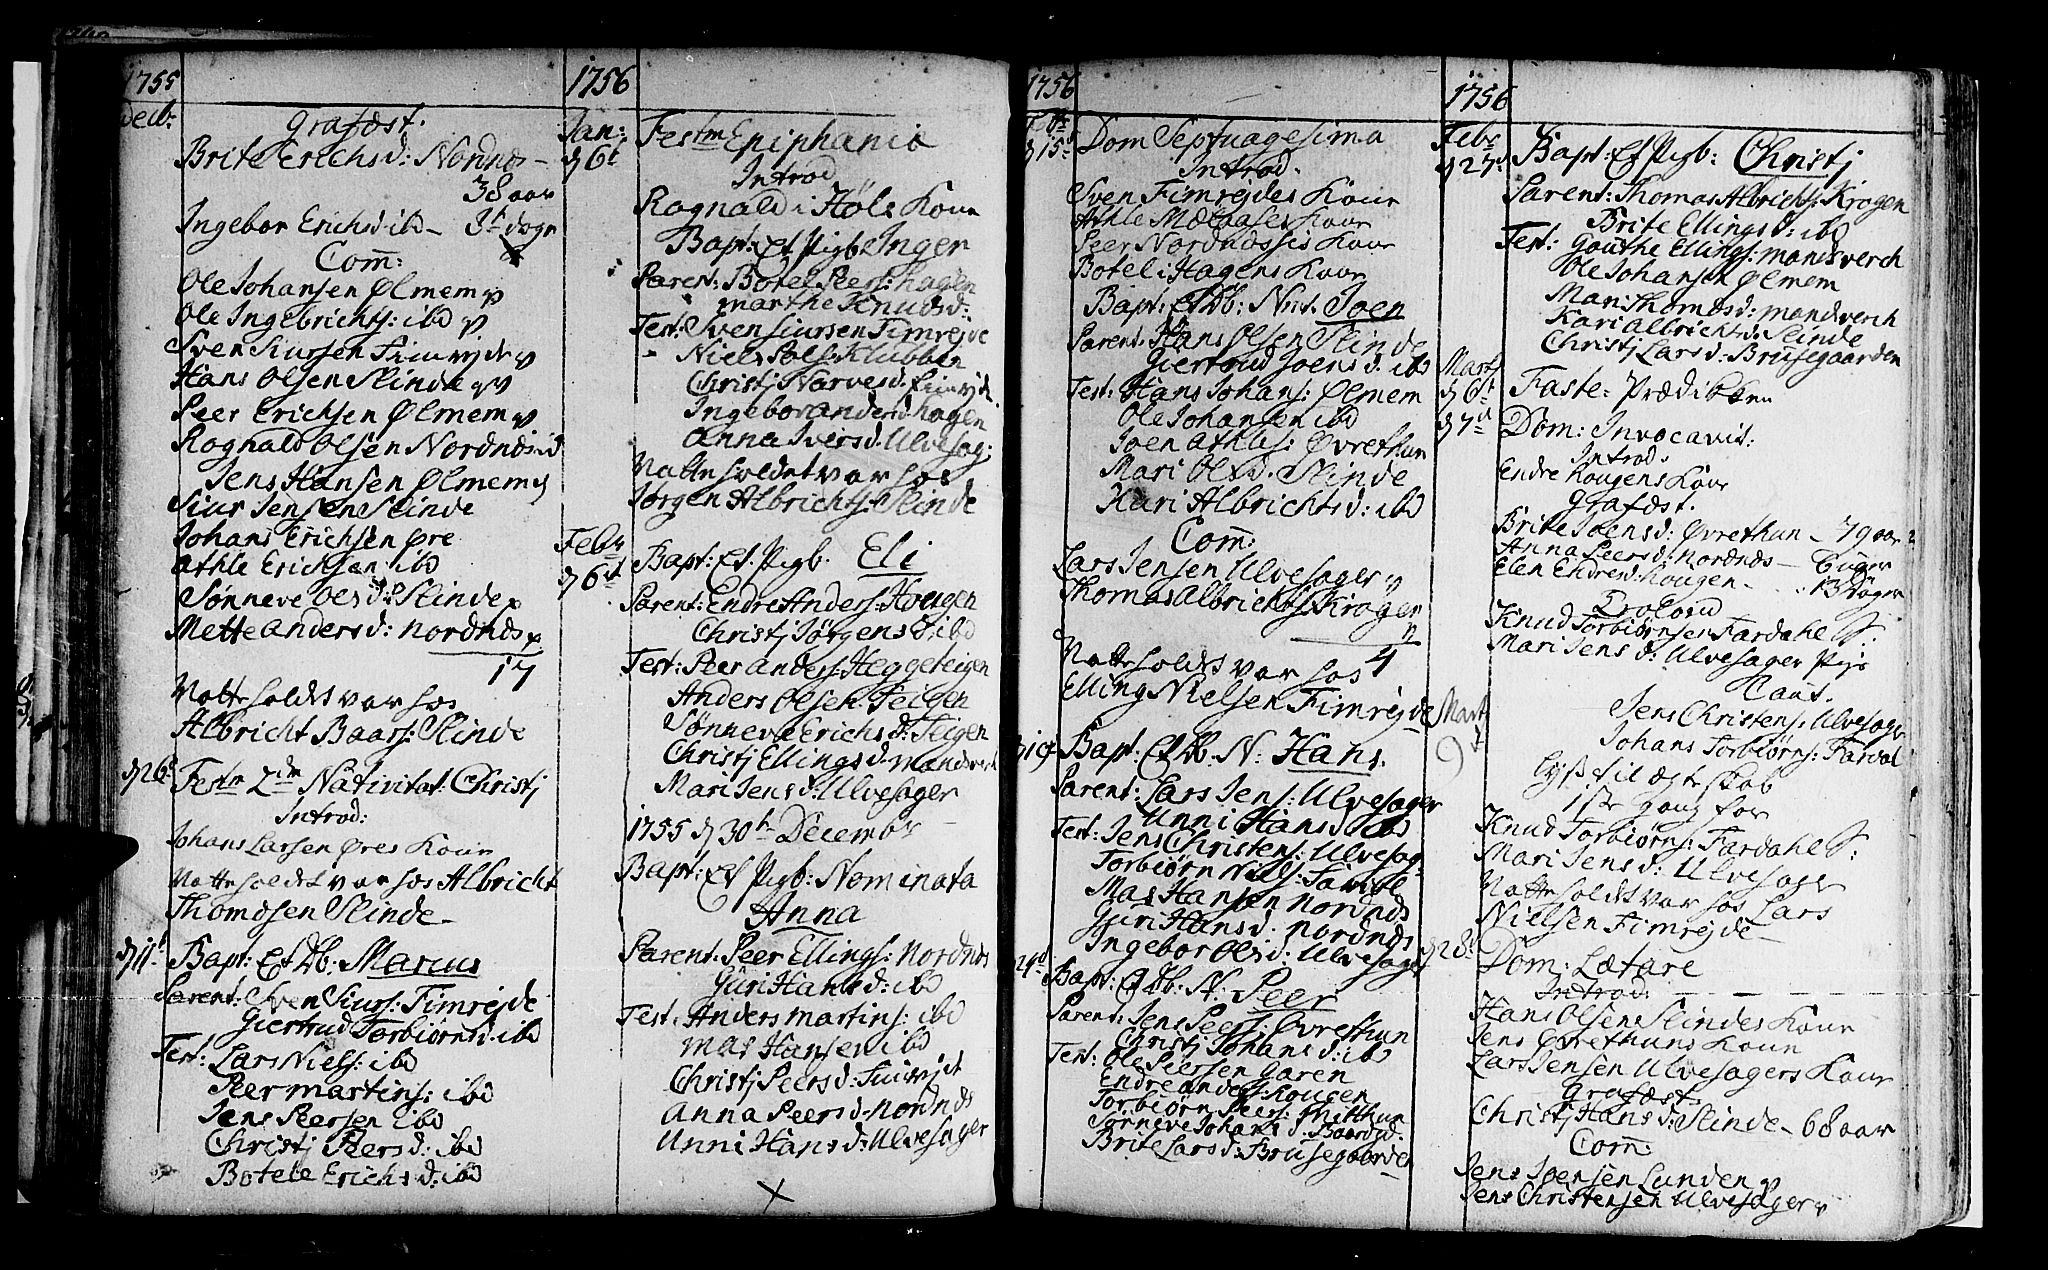 1755
Decb:
Grafæst.
Brite Erichsd: Nordnæs –
38 aar
Ingebor Erichsd ibd – 3t døgn
Com̄:
Ole Johansen Ølmem
Ole Ingebrichts: ibd
Sven Siursen Fimrejde
Hans Olsen Slinde
Peer Erichsen Ølmem
Rognald Olsen Nordnæs
Jens Hansen Ølmem
Siur Jensen Slinde
Johans Erichsen Øre
Athle Erichsen ibd
Sønneve Olsd: Slinde
Mette Andersd: Nordnæs
17
Natteholdet var hos
Albricht Baars: Slinde
d 26d Festm 2dm Nativitat: Christj
Introd:
Johans Larsen Øres Kone
Natteholdet var hos Albricht
Thomæsen Slinde –
d 11t Bapt: Et Db: Marcus
Parent: Sven Siurs: Fimrejde
Giertrud Torbiørnsd: ibd
Test: Lars Niels: ibd
Peer Martins: ibd
Jens Peersen ibd
Christj Peersd: ibd
Botele Erichsd: ibd
1756
Jan:
d 6t
Festm Epiphania
Introd
Rognald i Høle Kone
Bapt: Et Pigb: Inger
Parent: Botel Peers: Hagen
Marthe Knudsd:
Test: Sven Siursen Fimrejde
Niels Pols: Klubben
Christj Narvesd: Fimrejd.
Ingebor Andersd Hagen
Anna Iversd: Ulvesag:
Natteholdet var hos
Jørgen Albrichts: Slinde
Feb:
d 6t
Bapt: Et Pigb. Eli
Parent: Endre Anders: Hougen
Christj Jørgensd: ibd
Test: Peer Anders: Heggeteigen
Anders Olsen Teigen
Sønneve Erichsd: Teigen
Christj Ellingsd: Mandsverk
Mari Jensd: Ulvesager
1755 d 30t December
Bapt: Et Pigb: Nominata
Anna
Parent: Peer Ellings: Nordnæs
Guri Hansd: ibd
Test: Anders Martins: ibd
Mas Hansen ibd
Christj Peersd: Fimrejt
Anna Peersd: Nordnæs
Unni Hansd: Ulvesager
1756
Feb:
d 15d
Dom Septuagesima
Introd.
Sven Fimrejdes Kone
Peer Nordnæsses Kone
Botel i Hagens Kone
Bapt: Et Db: Nm: Joen
Parent: Hans Olsen Slinde
Giertrud Joensd: ibd
Test: Hans Johans: Ølmem
Ole Johansen ibd
Joen Athles: Øvrethun
Mari Olsd. Slinde
Kari Albrichtsd: ibd
Com̄:
Lars Jensen Ulvesager
Thomas Albrichts: Krogen
4
Natteholdet var hos
Elling Nielsen Fimrejde
Bapt: Et Db. N: Hans.
Parent: Lars Jens: Ulvesager
Unni Hansd ibd
Test: Jens Christens: Ulvesag
Torbiørn Niels:
Mas Hansen Nordnæs
Guri Hansd. Nordnæs
Ingebor Olsd: Ulvesager
29d Bapt: Et Db: N: Peer
Parent: Jens Peers: Øvrethun
Christj Johansd: ibd
Test: Ole Peersen Garen
Endre Anders: Hougen
Torbiørn Peers: Mitthun
Sønneve Johansd.
Brite Larsd: Brusegaarden
1756
Febr
d 27d
Bapt: Et Pigb: Christj
Parent: Thomas Albrichts: Krogen
Brite Ellingsd: ibd
Test: Gouthe Ellings: Mandsverch
Ole Johansen Ølmem
Mari Thomæsd: Mandsverch
Kari Albrichtsd: Slinde
Christj Larsd: Brusegaarden
Marts
d 6t Faste-Prædikken
d 7d Dom: Invocavit:
Introd:
Endre Hougens Kone
Grafæst.
Brite Joensd: Øvrethun – 79 aar
Anna Peersd: Nordnæs – 6 uger
Elen Endresd: Hougen – 13 døger
Trolovd
Knud Torbiørnsen Fardahl S:
Mari Jensd: Ulvesager Pige
Caut.
Jens Christens: Ulvesager
Johans Torbiørns: Fardal
Lyst til ægteskab
1ste gang for
Knud Torbiørns: Fardahl S:
Mari Jensd: Ulvesager
Natteholdet var hos Lars
Nielsen Fimrejde –
Mart
9
d 28d
Dom: Lætare
Introd:
Hans Olsen Slindes Kone
Jens Øvrethuns Kone
Lars Jensen Ulvesagers Kone
Grafæst.
Christj Hansd: Slinde – 68 aar
Com̄:
Jens Joensen Lunden
Jens Christensen Ulvesager